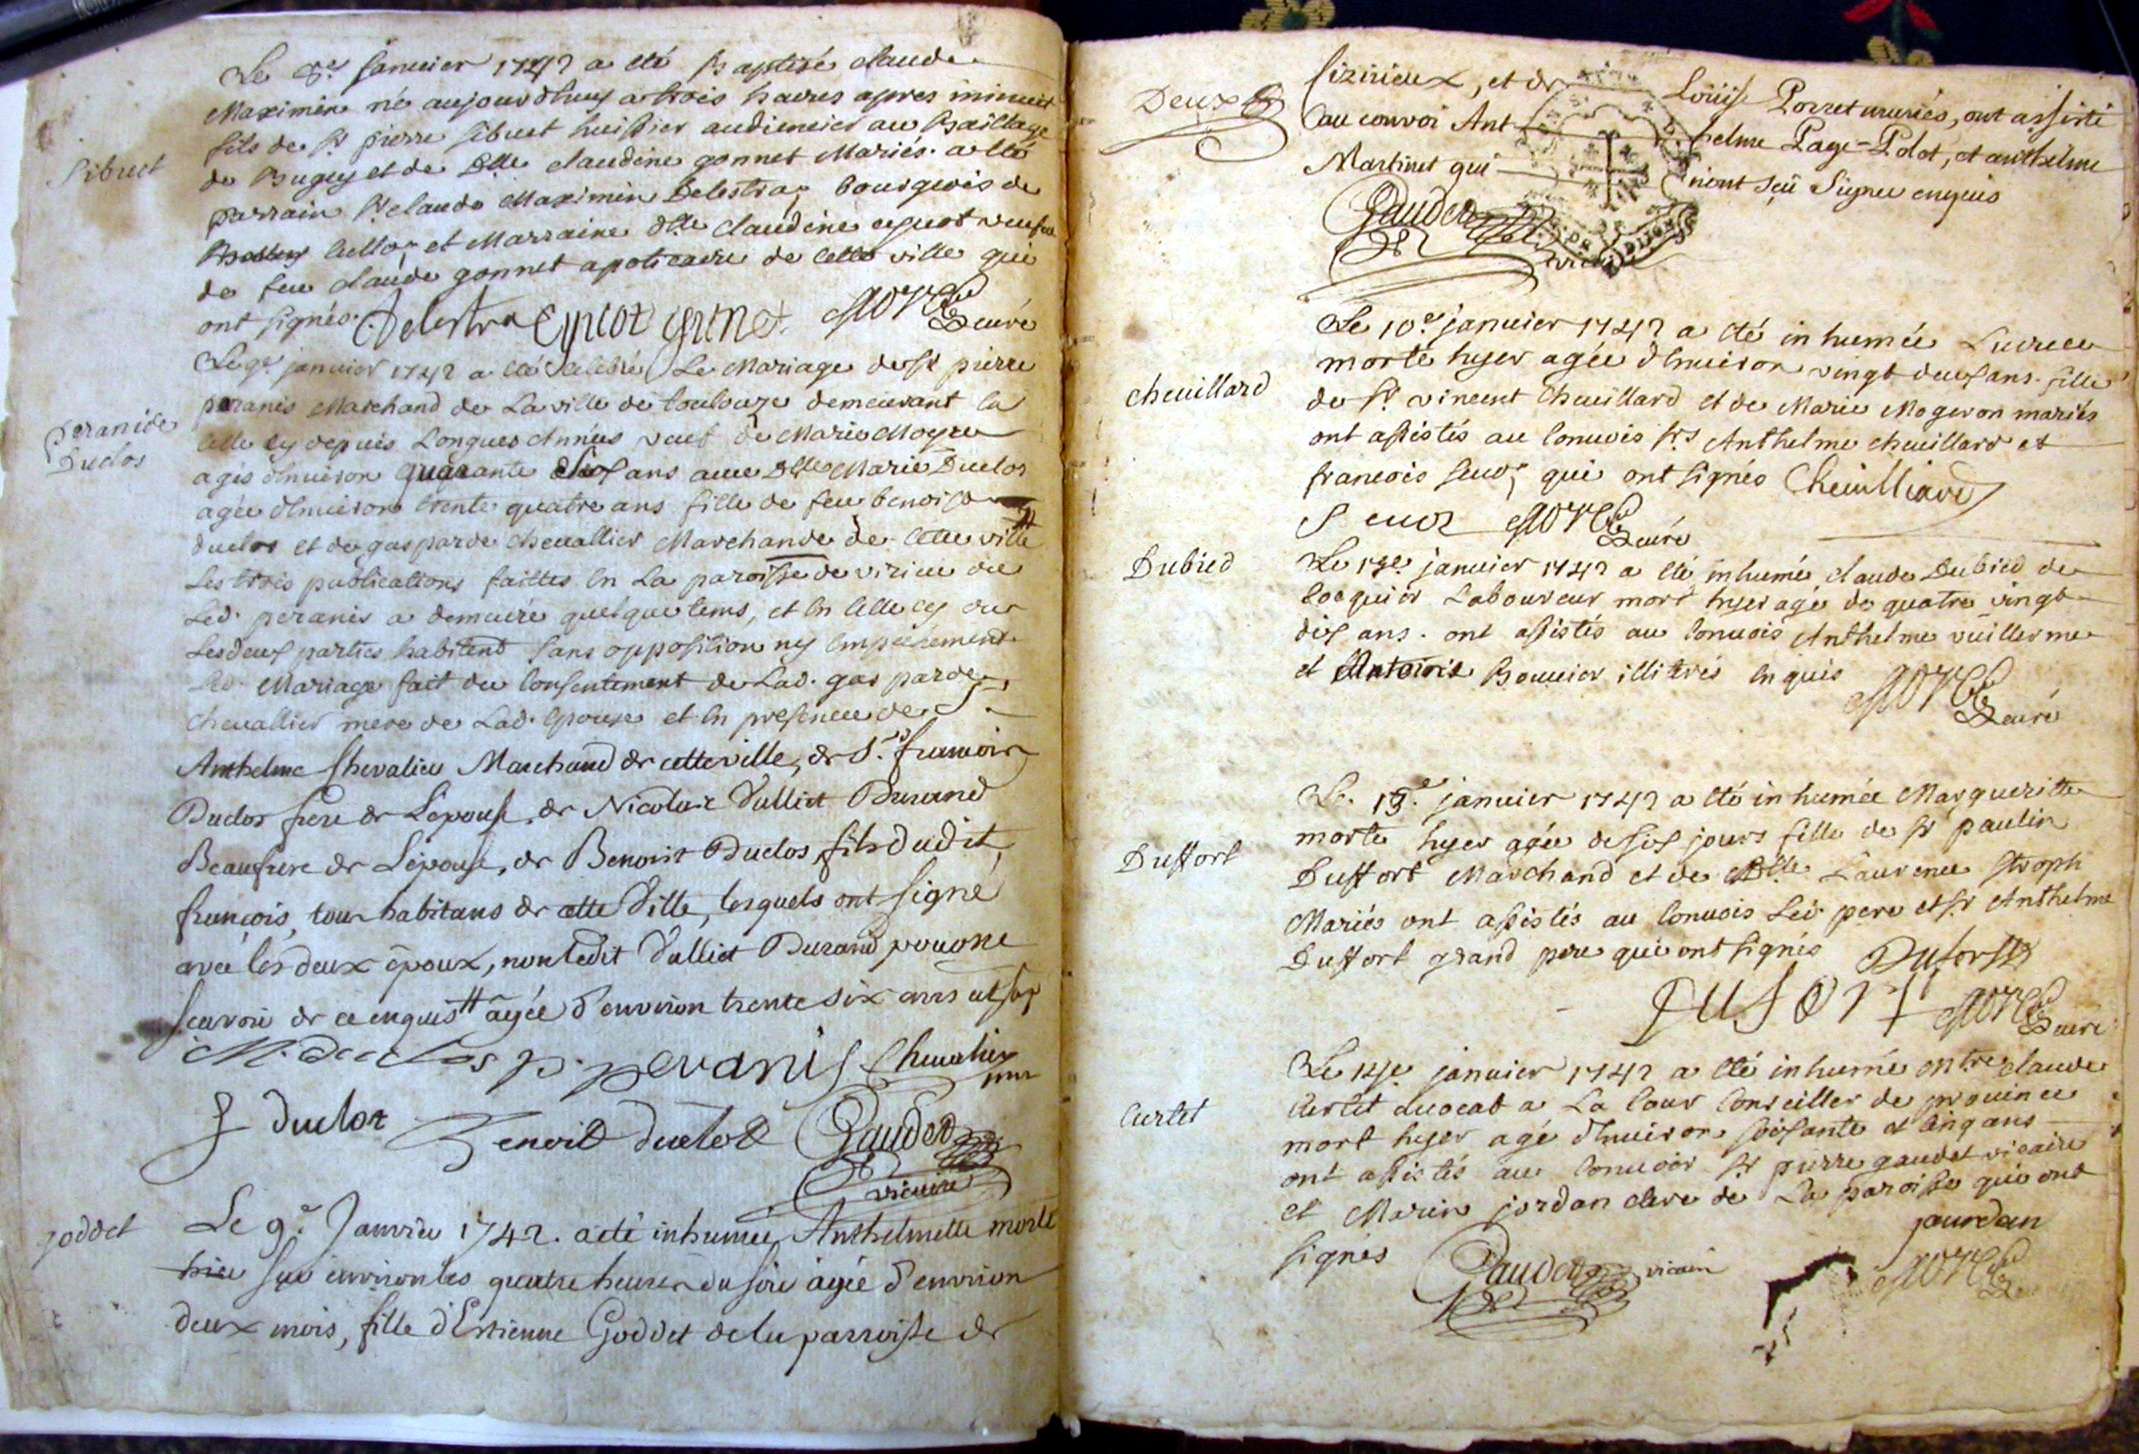 Le 8e janvier 1742 a été baptisé claude
Maximin né aujourdhuy a trois heures apres minuit
fils de sr pierre sibuet huissier audiencier au bailliage
Sibuet
de Bugey et de Dlle claudine gonnet Mariés. a été
parrain sr claude Maximin Delestra, bourgeois de
Belley, et Marraine dlle claudine cyuot veufve
de feu claude gonnet apoticaire de cette ville qui
ont signés. Delestra Cyuot genet curé
Le 9e janvier 1742 a été célébré Le Mariage de sr pierre
peranis Marchand de La ville de toulouze demeurant en
celle cy depuis Longues Années veuf de Marie Moyne
peranis
Duclos
agés d'enuiron quarante six ans auec Dlle Marie Duclos
agée d'enuiron trente quatre ans fille de feu benoist
duclos et de gasparde cheuallier Marchande de cette ville
Les trois publications faittes en La paroisse de virieu ou
Led. peranis a demeuré quelque tems, et en celle cy ou
Les deux parties habitent sans opposition ny empéchement
Led. Mariage fait du consentement de Lad. gasparde
cheuallier mere de Lad. épouse et en presence de Sr
Anthelme Chevalier Marchand de cette ville, de Sr. francois
Duclos frere de L'epouse, de Nicolas Vulliet Durand
Beaufrere de L'épouse, de Benoist Duclos fils dudit
françois, tous habitans de cette Ville, lesquels ont signé
avec les deux époux, non ledit Vulliet Durand pour ne
scavoir de ce enquis # agée d'environ trente six ans
M. duclos p. peranis Chevalier
f duclot Benoit duclot Gaudet
vicaire
goddet
Le 9e. Janvier 1742. a été inhumée Anthelmette morte
hier sur environ les quatre heures du soir agée d'environ
deux mois, fille d'Estienne Goddet de la parroisse de
Deux
sizirieux, et de Loüise Porret mariés, ont assisté
au convoi Anthelme Page-Polot, et anthelme
Martinet qui n'ont sçü signer enquis
Gaudet
vicaire
Le 10e. janvier 1742 a été inhumée Lucrece
morte hyer agée d'enuiron vingt deux ans. fille
cheuillard
de sr vincent Cheuillard et de Marie Mogeron mariés
ont assistés au conuois srs Anthelme cheuillard et
francois seuoz qui ont signés Cheuilliard
Seuoz curé
Dubied
Le janvier 1742 a été inhumé claude Dubied de
coaquier Laboureur mort hyer agé de quatre vingt
dix ans. ont assistés au conuois Anthelme vuillerme
et Antoine Bouuier illitérés enquis
curé
Le. 13e. janvier 1742 a été inhumée Marguerite
morte hyer agée de six jours fille de sr paulin
Duffort
Duffort Marchand et de Dlle Laurence stroph
Mariés ont assistés au conuois Led pere et sr Anthelme
Duffort grand pere qui ont signés Dufort
Dufort curé
Le 14e janvier 1742 a été inhumé Mre claude
Curtet
Curtet auocat a La Cour Conseiller de prouince
mort hyer agé d'enuiron soixante et cinq ans
ont assistés au conuoir sr pierre gaudet vicaire
et Marin jordan clerc de La paroisse qui ont
signés Gaudet vicaire Jourdan